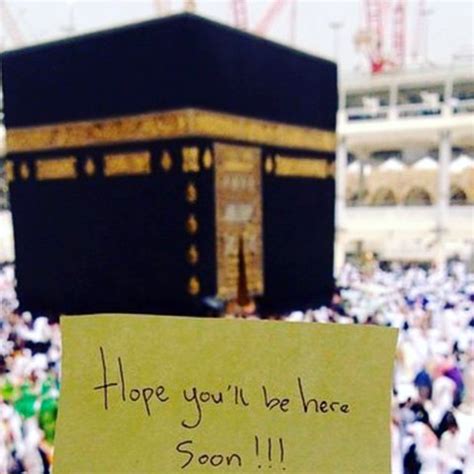 Hope you'll be here
Soon !!!